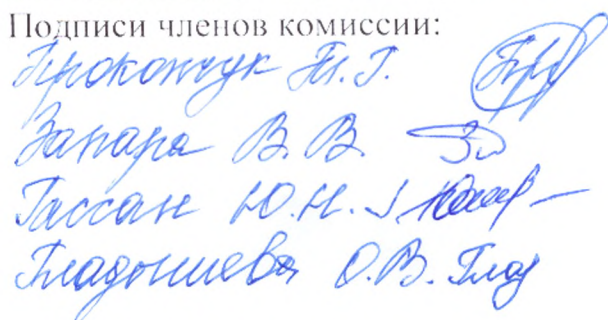 Подписи членов комиссии:
Прокопчук Т.Г.
Запара В.В.
Гассан Ю.Н.
О.В.